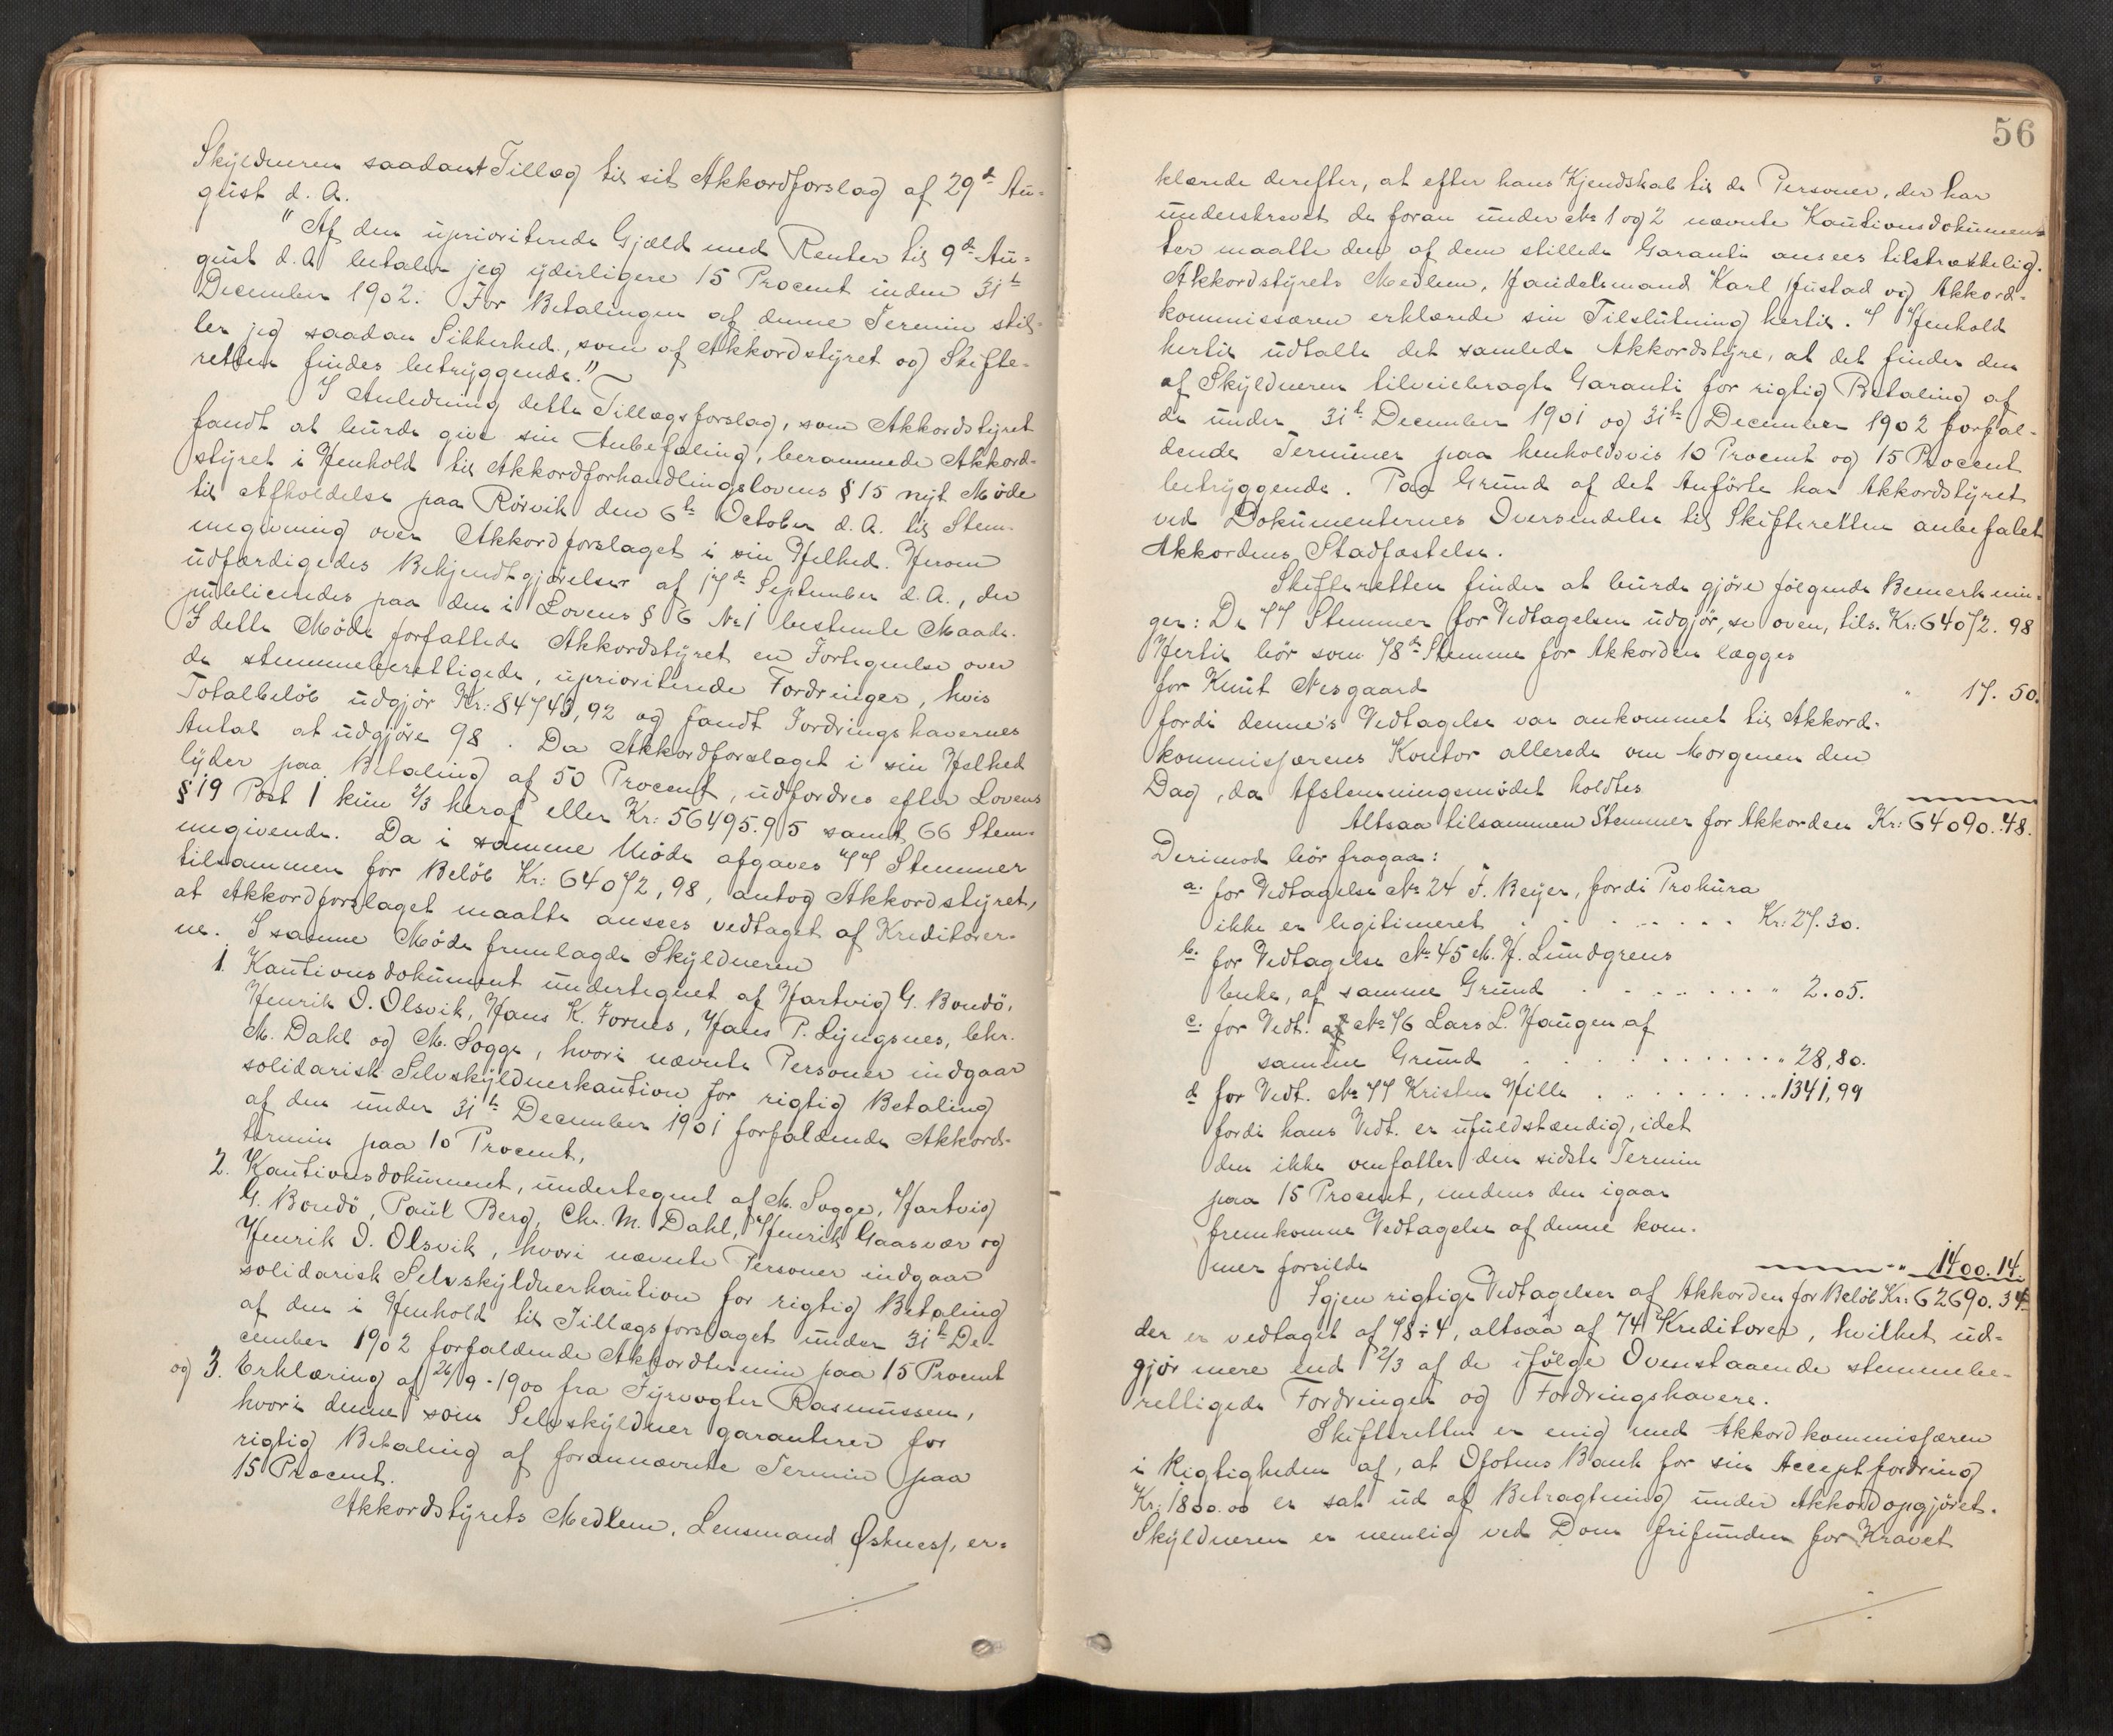 Skyldneren saadant Tillæg til sit Akkordforslag af 29de Au-
gust d. A.
"Af den uprioriterede Gjæld med Renter til 9de Au-
gust d. A betaler jeg yderligere 15 Procent inden 31te
December 1902. For Betalingen af denne Termin stil-
ler jeg saadan Sikkerhed, som af Akkordstyret og Skifte-
retten findes betryggende."
I Anledning dette Tillægsforslag, som Akkordstyret
fandt at burde give sin Anbefaling, berammede Akkord-
styret i Henhold til Akkordforhandlingslovens § 15 nyt Møde
til Afholdelse paa Rörvik den 6te October d. A. til Stem-
megivning over Akkordforslaget i sin Helhed. Herom
udfærdigedes Bekjendtgjørelser af 17de September d. A., der
publiceredes paa den i Lovens § 6 No 1 bestemte Maade.
I dette Møde forfattede Akkordstyret en Fortegnelse over
de stemmeberettigede, uprioriterede Fordringer, hvis
Totalbelöb udgjör Kr: 84743,92 og fandt Fordringshavernes
Antal at udgjöre 98. Da Akkordforslaget i sin Helhed
lyder paa Betaling af 50 Procent, udfordres efter Lovens
§ 19 Post 1 kun 2/3 heraf eller Kr: 56495.95 samt 66 Stem-
megivende. Da i samme Møde afgaves 77 Stemmer
tilsammen for Belöb Kr: 64072,98, antog Akkordstyret,
at Akkordforslaget maatte ansees vedtaget af Kreditorer-
ne. I samme Møde fremlagde Skyldneren
1. Kautionsdokument undertegnet af Hartvig G. Bondö,
Henrik O. Olsvik, Hans K. Fornes, Hans P. Lyngsnes, Chr.
M. Dahl og M. Sogge, hvori nævnte Personer indgaar
solidarisk Selvskyldnerkaution for rigtig Betaling
af den under 31te December 1901 forfaldende Akkord-
termin paa 10 Procent,
2. Kautionsdokument, undertegnet af M. Sogge, Hartvig
G. Bondö, Paul Berg, Chr. M. Dahl, Henrik Gaasvær og
Henrik O. Olsvik, hvori nævnte Personer indgaar
solidarisk Selvskyldnerkaution for rigtig Betaling
af den i Henhold til Tillægsforslaget under 31te De-
cember 1902 forfaldende Akkordtermin paa 15 Procent
og 3. Erklæring af 26/9-1900 fra Fyrvogter Rasmussen,
hvori denne som Selvskyldner garanterer for
rigtig Betaling af forannævnte Termin paa
15 Procent.
Akkordstyrets Medlem, Lensmand Østnesf, er-
56
klærede derefter, at efter hans Kjendskab til de Personer, der har
underskrevet de foran under No 1 og 2 nævnte Kautionsdokumen-
ter maatte den af dem stillede Garanti ansees tilstrækkelig.
Akkordstyrets Medlem, Handelsmand Karl Hustad og Akkord-
kommissæren erklærede sin Tilslutning hertil. I Henhold
hertil udtalte det samlede Akkordstyre, at det finder den
af Skyldneren tilveiebragte Garanti for rigtig Betaling af
de under 31te December 1901 og 31te December 1902 forfal-
dende Terminer paa henholdsvis 10 Procent og 15 Procent
betryggende. Paa Grund af det Anförte har Akkordstyret
ved Dokumenternes Oversendelse til Skifteretten anbefalet
Akkordens Stadfæstelse.
Skifteretten finder at burde gjöre fölgende Bemerknin-
ger: De 77 Stemmer for Vedtagelsen udgjör, se oven, tils. Kr: 64072. 98
Hertil bör som 78de Stemme for Akkorden lægges
for Knut Nesgaard " 17. 50.
fordi denne's Vedtagelse var ankommet til Akkord-
kommissærens Kontor allerede om Morgenen den
Dag, da Afstemningsmödet holdtes
Altsaa tilsammen Stemmer for Akkorden Kr: 64090. 48.
Derimod bör fragaa:
a. for Vedtagelse No 24 F. Beyer, fordi Prokura
ikke er legitimeret . . . . . . . Kr: 27. 30.
b. for Vedtagelse No 45 M. H. Lundgrens
Enke, af samme Grund . . . . . . " 2.05.
c. for Vedt. af No 76 Lars L. Haugen af
samme Grund . . . . . . . . . " 28,80.
d for Vedt. No 77 Kristen Hille . . . . . . " 1341,99
fordi hans Vedt. er ufuldstændig, idet
den ikke omfatter den sidste Termin
paa 15 Procent, medens den igaar
fremkomne Vedtagelse af denne kom-
mer forsilde " 1400. 14.
Igjen rigtige Vedtagelser af Akkorden for Belöb Kr: 62690. 34
der er vedtaget af 78÷4, altsaa af 74 Kreditorer, hvilket ud-
gjör mere end 2/3 af de ifölge Ovenstaaende stemmebe-
rettigede Fordringer og Fordringshavere.
Skifteretten er enig med Akkordkommissæren
i Rigtigheden af, at Ofotens Bank for sin Acceptfordring
Kr: 1800.00 er sat ud af Betragtning under Akkordopgjöret.
Skyldneren er nemlig ved Dom frifunden for Kravet